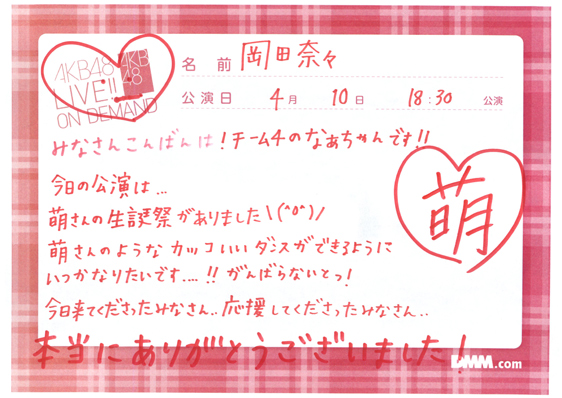 AKB48
LIVE!!
ON DEMAND
AKB
48
名 前 岡田奈々
公演日 4月 10日 18:30 公演
みなさんこんばんは!チーム4のなぁちゃんです!!
今日の公演は...
萌さんの生誕祭がありました\(^o^)/
萌さんのようなカッコいいダンスができるように
いつかなりたいです....!!がんばらないとっ!
萌
今日来てくださったみなさん..応援してくださったみなさん..
本当にありがとうございました!
DMM.com